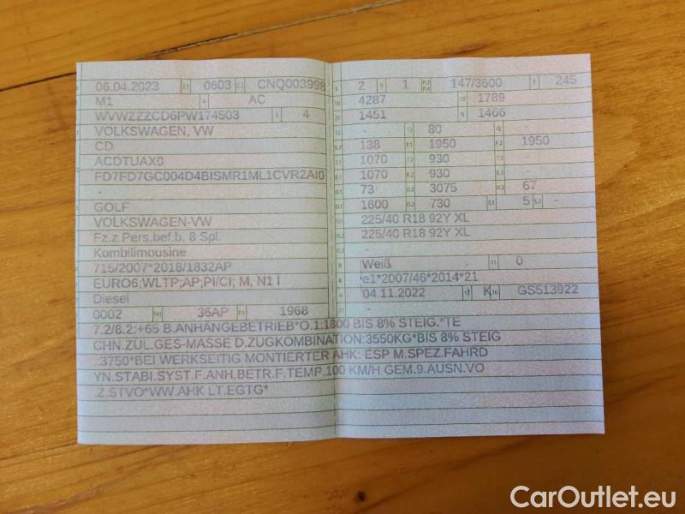 06.04.2023 0603 CNQ003998
M1 AC
WVWZZZCD6PW174503 4
VOLKSWAGEN, VW
CD
ACDTUAX0
FD7FD7GC004D4BISMR1ML1CVR2AI0
-
GOLF
VOLKSWAGEN-VW
Fz.z.Pers.bef.b. 8 Spl.
Kombilimousine
715/2007*2018/1832AP
EURO6;WLTP;AP;PI/CI; M, N1 I
Diesel
0002 36AP 1968
2 1 147/3600 245
4287 1789
1451 1466
- 80 -
138 1950 1950
1070 930 -
1070 930 -
73 3075 67
1600 730 5 -
225/40 R18 92Y XL
225/40 R18 92Y XL
-
Weiß 0
e1*2007/46*2014*21
04.11.2022 K GS513922
7.2/8.2:+65 B.ANHÄNGEBETRIEB*O.1:1800 BIS 8% STEIG.*TE
CHN.ZUL.GES-MASSE D.ZUGKOMBINATION:3550KG*BIS 8% STEIG
.3750*BEI WERKSEITIG MONTIERTER AHK: ESP M.SPEZ.FAHRD
YN.STABI.SYST.F.ANH.BETR.F.TEMP.100 KM/H GEM.9.AUSN.VO
.Z.STVO*WW.AHK LT.EGTG*
CarOutlet.eu